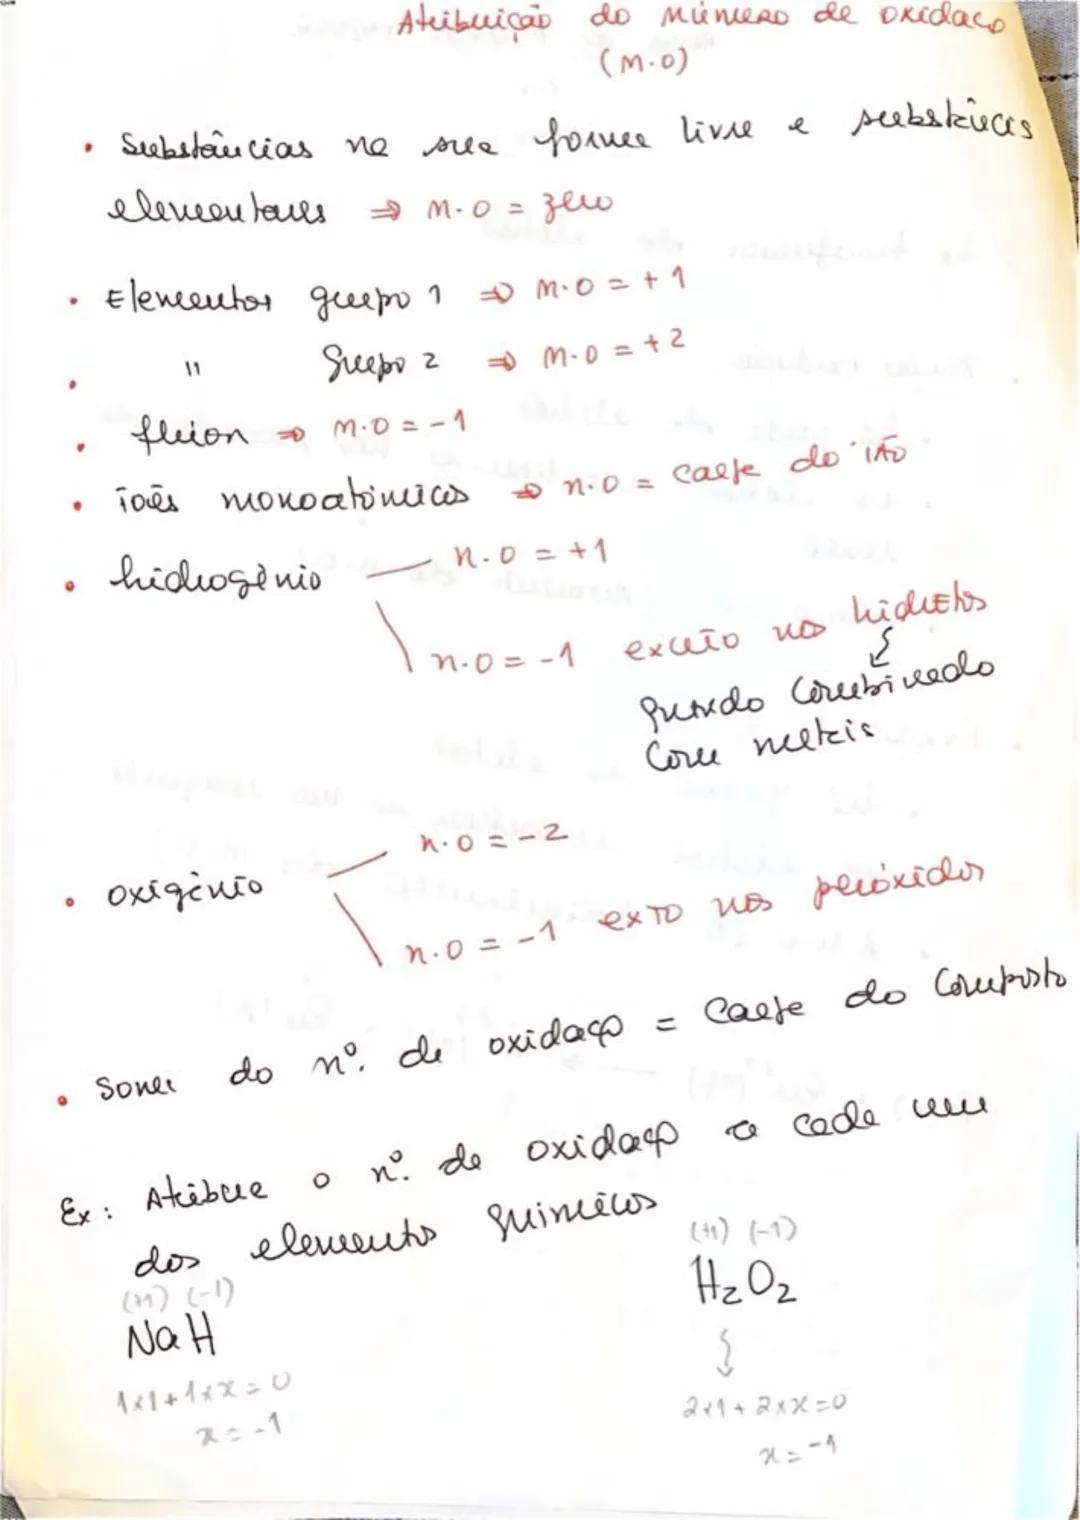 Atribuição do número de oxidação
(n.o)
• Substâncias na sua forma livre e substâncias
elementares ⇒ n.o = zero
• Elementos grupo 1 ⇒ n.o = +1
• " Grupo 2 ⇒ n.o = +2
• flúor ⇒ n.o = -1
• iões monoatómicos ⇒ n.o = carga do ião
• hidrogénio n.o = +1
n.o = -1 exceto nos hidretos
quando combinado
com metais
• oxigénio n.o = -2
n.o = -1 exto nos peróxidos
• Soma do nº. de oxidação = carga do composto
Ex: Atribua o nº. de oxidação a cada um
dos elementos químicos
(+1) (-1)
NaH
1x1+1xx=0
x=-1
(+1) (-1)
H2O2
2x1+2xx=0
x=-1